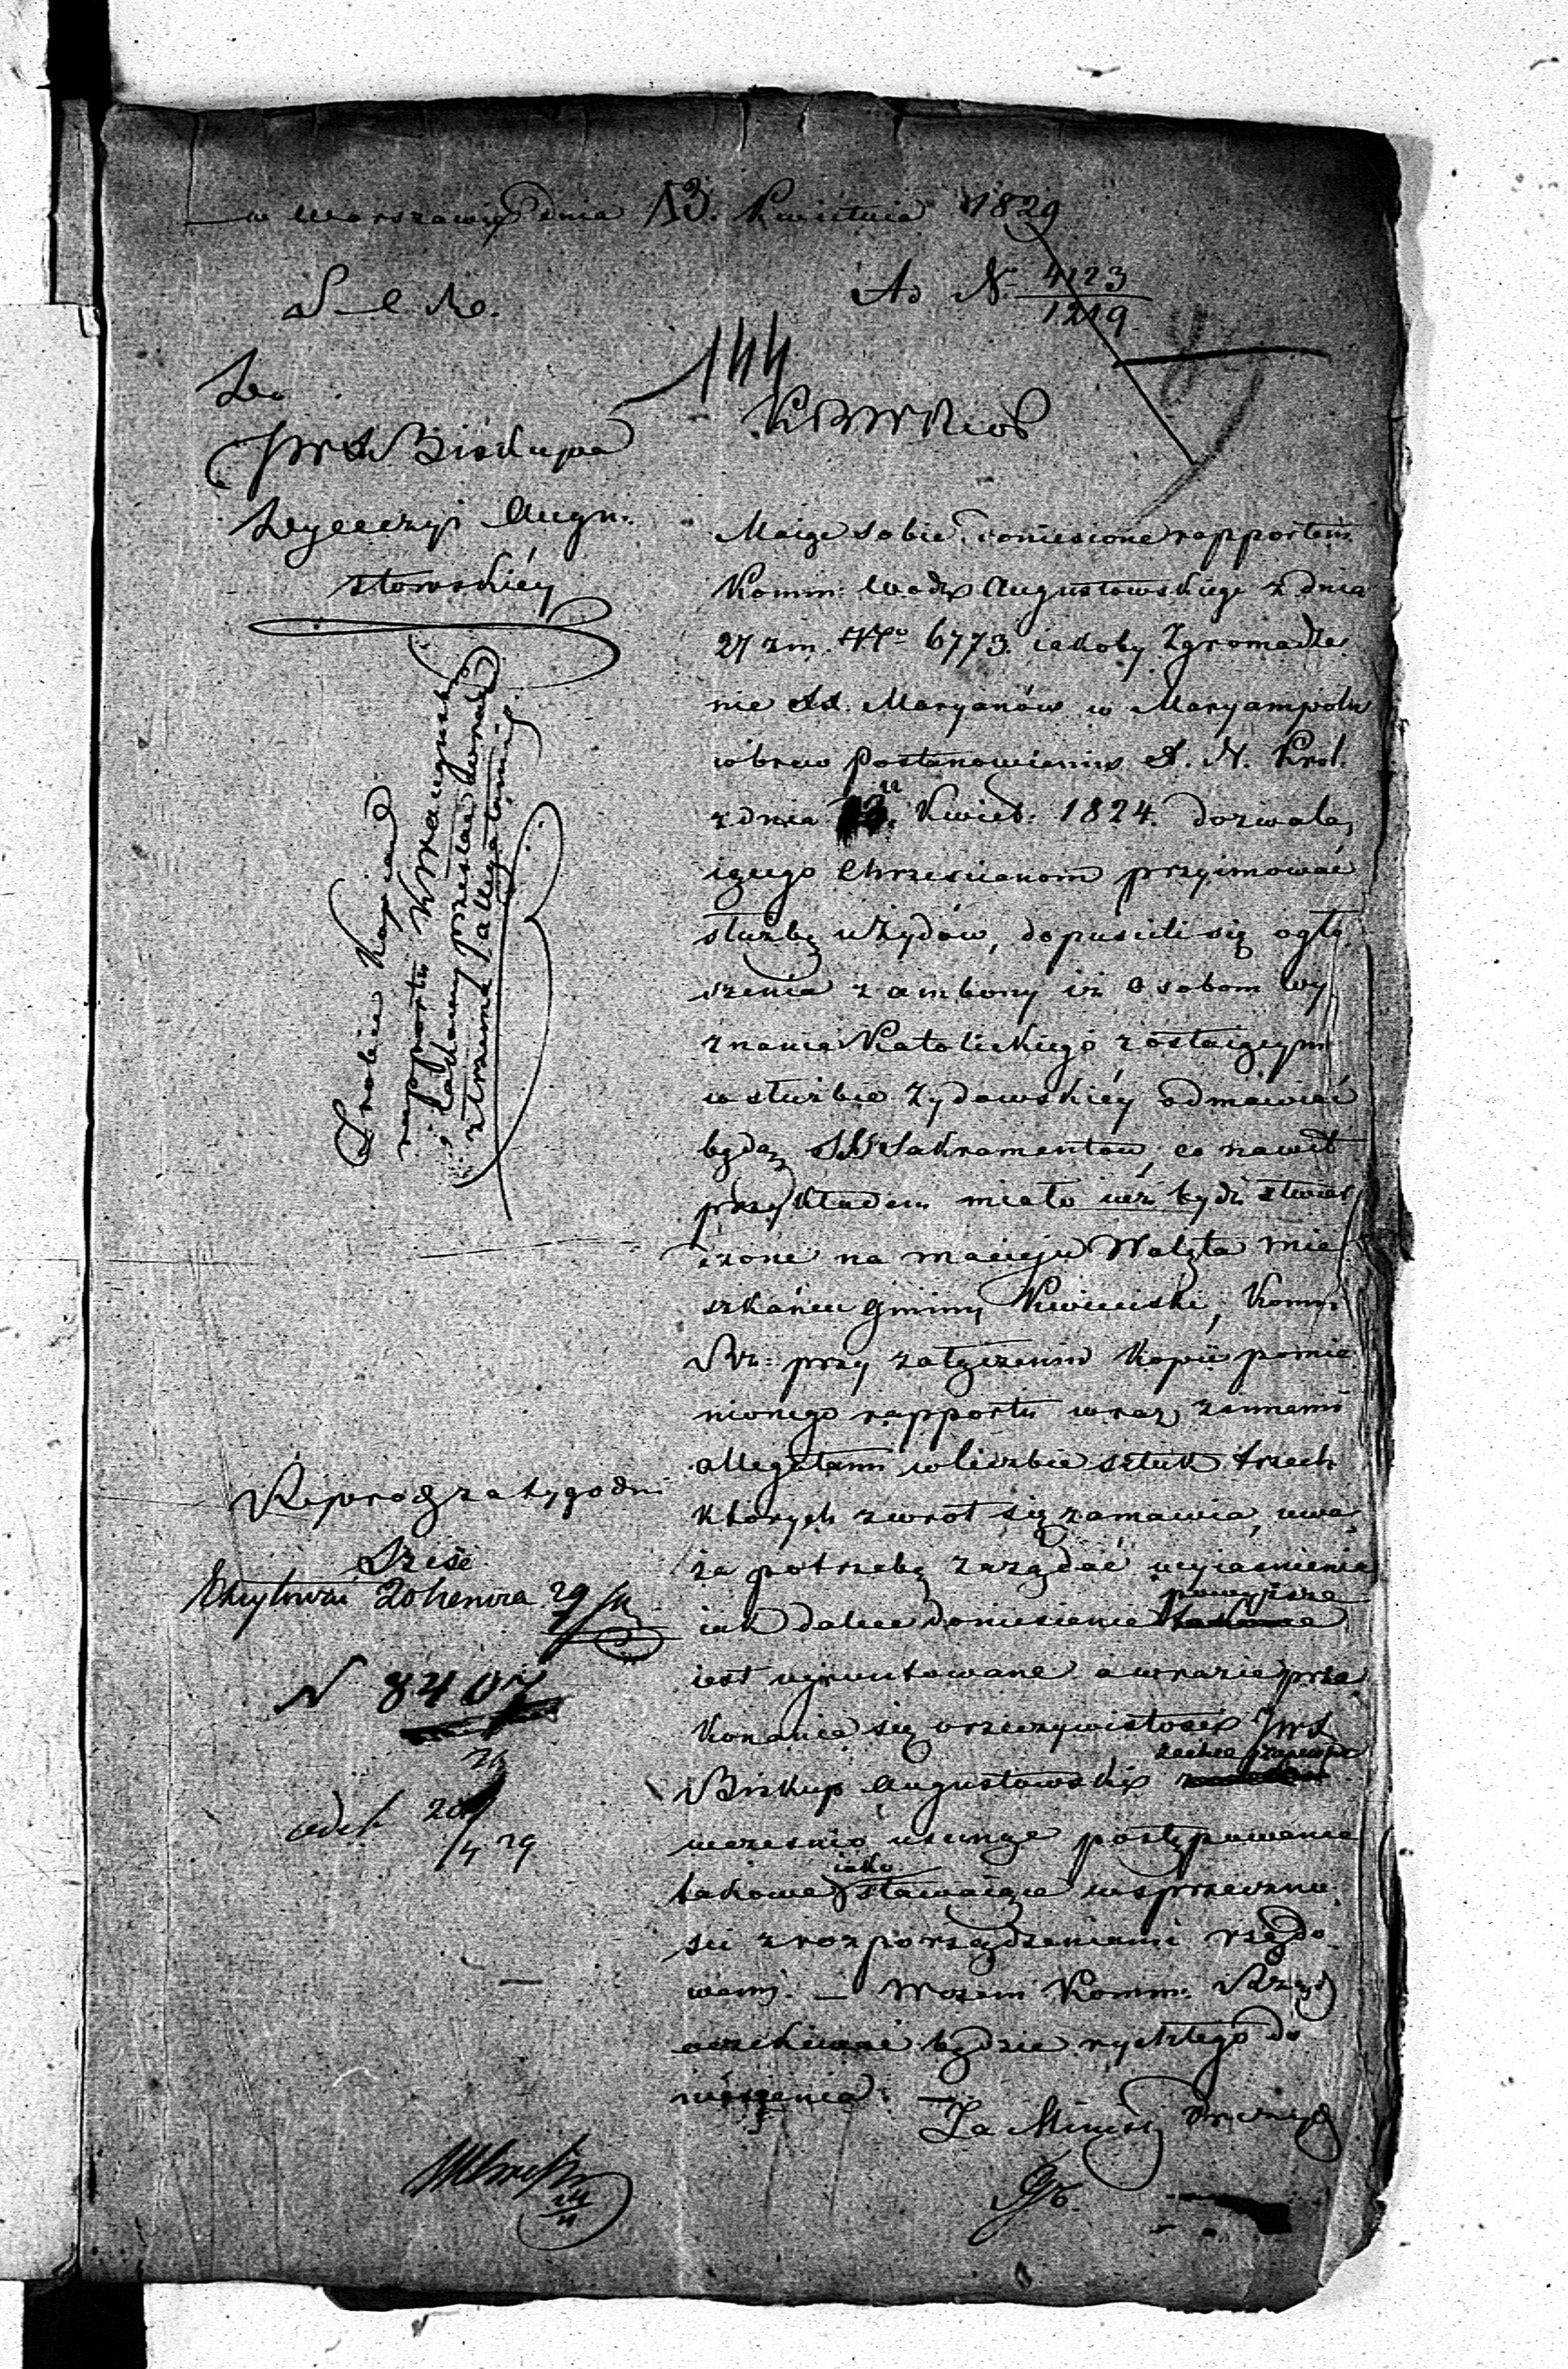 w Warszawie dnia 13. Kwietnia 1829
Ad N. 4123
1219
144
Do
JWX Biskupa
Dyecezyi Augu.
stowskiéy
KRWRiOP
Maiąc sobie doniesione rapportem
Komm: Wodz Augustowskiego z dnia
27 zm. No 6773. iakoby Zgromadze
nie XX. Maryanów w Maryampolu
wbrew Postanowieniu X. N. Król.
z dnia 13. Kwiet: 1824. dozwala,
iącego Chrześcianom przyimować
służbę u Żydów, dopuścili się ogło
szenia z ambony iż osobom wy
znania Katolickiego zostaiącym
w służbie Żydowskiéy odmawiać
będą SS Sakramentów, co nawet
przykładem miało iuż bydź stwier
dzone na Macieju Walęta mie
szkańcu gminy Kwieciszki, Komm.
Rz: przy załączeniu Kopii pomie
nionego rapportu wraz z innemi
allegatami w liczbie sztuk trzech
których zwrot się zamawia, uwa
ża potrzebę zażądać wyiaśnienia
iak dalece doniesienie powyższe
iest ugruntowane a w razie prze
konania się o rzeczywistości JWX
Biskup Augustowski zechce zapewne
wcześnie usunąć postępowanie
takowe iako stawaiące w sprzeczno
ści z rozporządzeniami rządo
wemi. — W czem Komm. Rząd
oczekiwać będzie rychłego do
niesienia. —
Za Ministr Prezyd
Zrobić kopią
rapportu KWAugust
i takowy przesłać wraz
z trzema allegatami
Reprod za tygodni
Sześć
N 8407
29
exp. 20/4 29